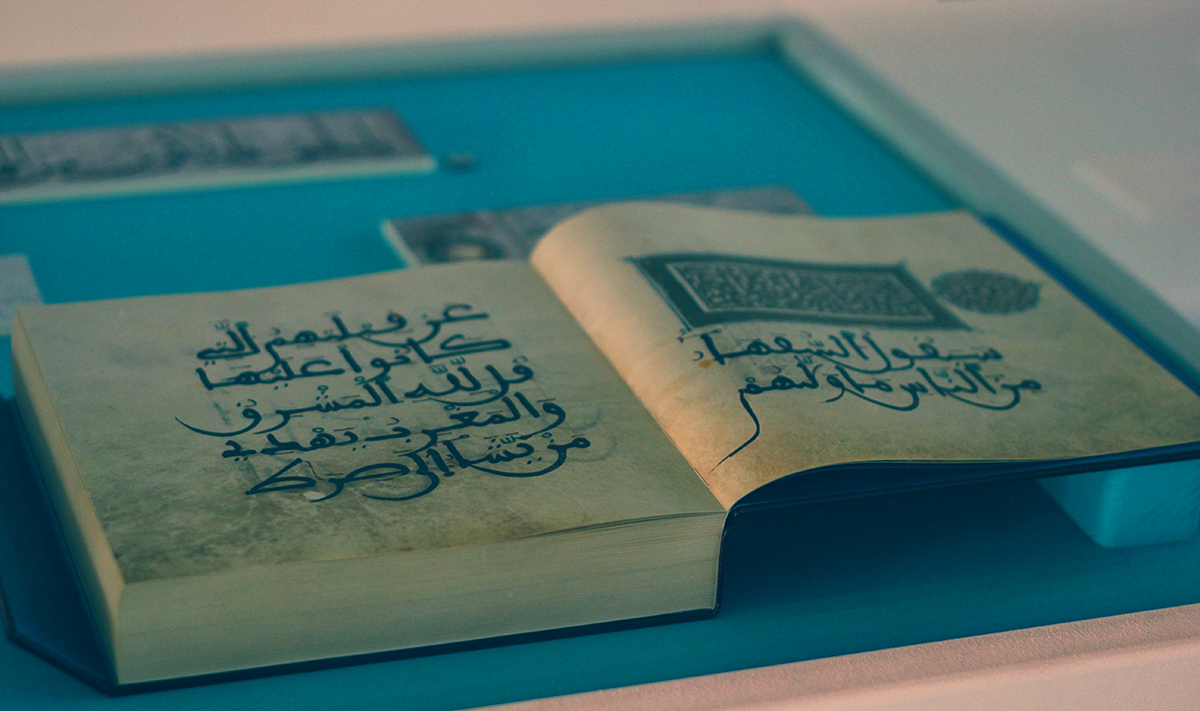 سيقول السفهاء
من الناس ما وليهم
عن قبلتهم التي
كانوا عليها
قل لله المشرق
والمغرب يهدي
من يشاء الى صرط